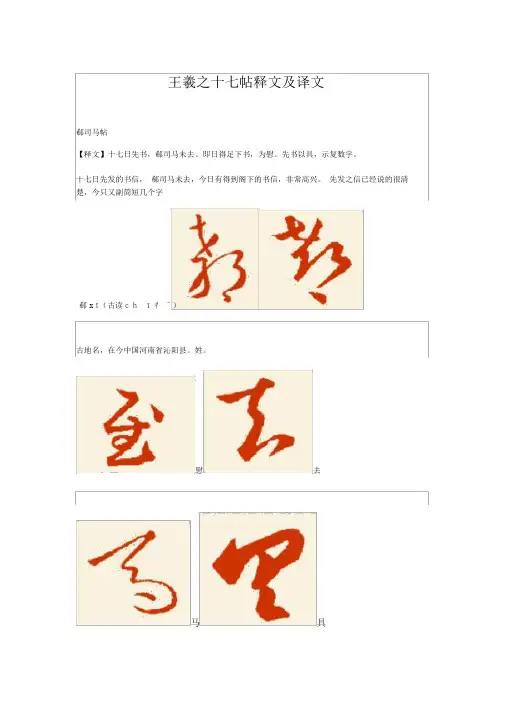 王羲之十七帖释文及译文
郗司马帖
【释文】十七日先书，郗司马未去。即日得足下书，为慰。先书以具，示复数字。
十七日先发的书信， 郗司马未去，今日有得到阁下的书信，非常高兴。 先发之信已经说的很清
楚，今只又副简短几个字
郗 xī（古读ch
古地名，在今中国河南省沁阳县。姓。
慰 去
马 具